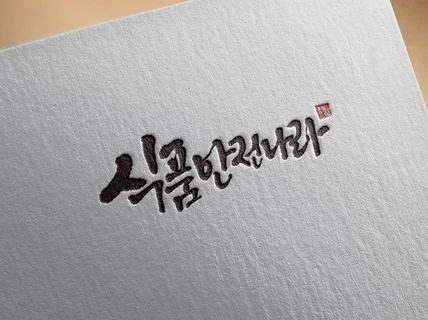 식품안전나라